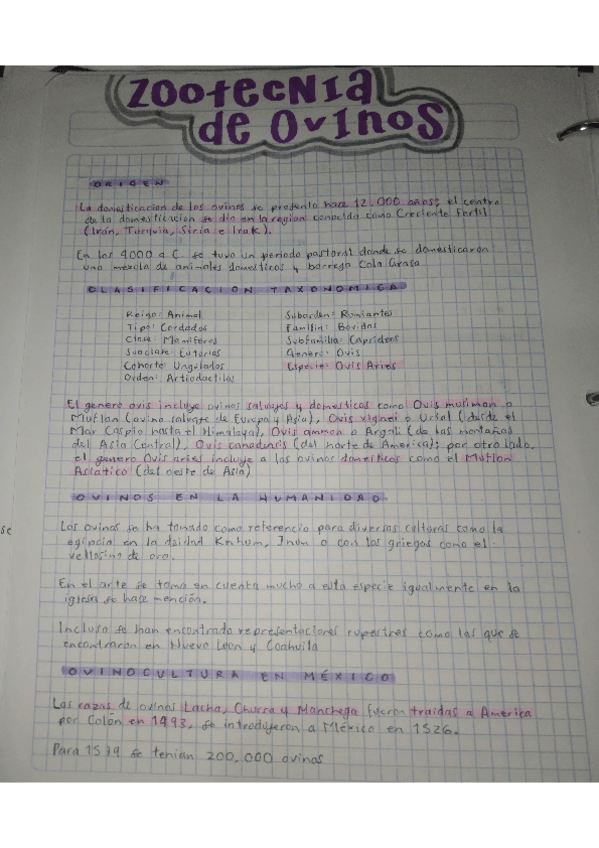 Zootecnia
de Ovinos
ORIGEN
La domesticacion de los ovinos se presento hace 12.000 años, el centro
de la domesticación se dio en la region conocida como Creciente Fertil
(Irán, Turquia, Siria e Irak).
En los 4000 a.C. se tuvo un periodo pastoral donde se domesticaron
una mezcla de animales domesticos y borrega Cola Grasa
CLASIFICACION TAXONOMICA
Reino: Animal
Tipo: Cordados
Clase: Mamiferos
Subclase: Euterios
Cohorte: Ungulados
Orden: Artiodactilos
Suborden: Rumiantes
Familia: Bovidos
Subfamilia: Caprideos
Genero: Ovis
Especie: Ovis Aries
El genero ovis incluye ovinos salvajes y domesticos como Ovis musimon o
Muflon (ovino salvaje de Europa y Asia), Ovis vignei o Urial (desde el
Mar Caspio hasta el Himalaya), Ovis ammon o Argali (de las montañas
del Asia Central), Ovis canadensis (del norte de America); por otro lado,
el genero Ovis aries incluye a los ovinos domesticos como el Muflon
Asiatico (del oeste de Asia)
OVINOS EN LA HUMANIDAD
Los ovinos se ha tomado como referencia para diversas culturas como la
egipcia en la deidad Knhum, Jnum o con los griegos como el
vellosino de oro.
En el arte se toma en cuenta mucho a esta especie igualmente en la
iglesia se hace mención.
Incluso se han encontrado representaciones rupestres como las que se
encontraron en Nuevo Leon y Coahuila
OVINOCULTURA EN MÉXICO
Las razas de ovinos Lacha, Churra y Manchega fueron traidas a America
por Colón en 1493, se introdujeron a México en 1526.
Para 1539 se tenian 200,000 ovinos